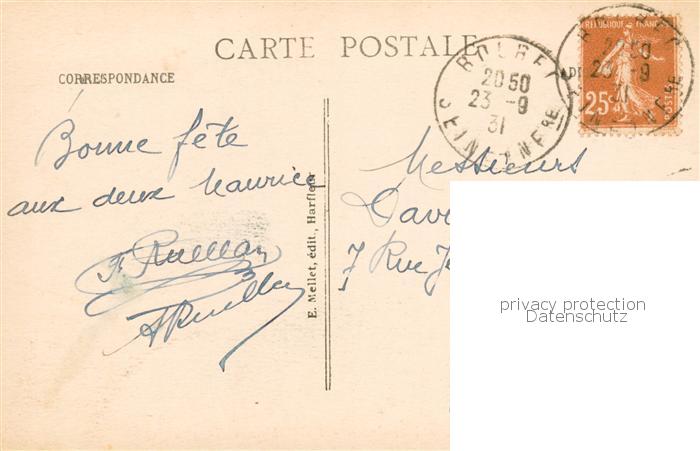 CARTE POSTALE
CORRESPONDANCE
Bonne fête
aux deux Maurice
E. Mellet, édit., Harfleur
BOLBEC
20 50
23 - 9
31
SEINE INFRE
REPUBLIQUE FRANC
25c
POSTES
Messieurs
7 Rue
privacy protection
Datenschutz